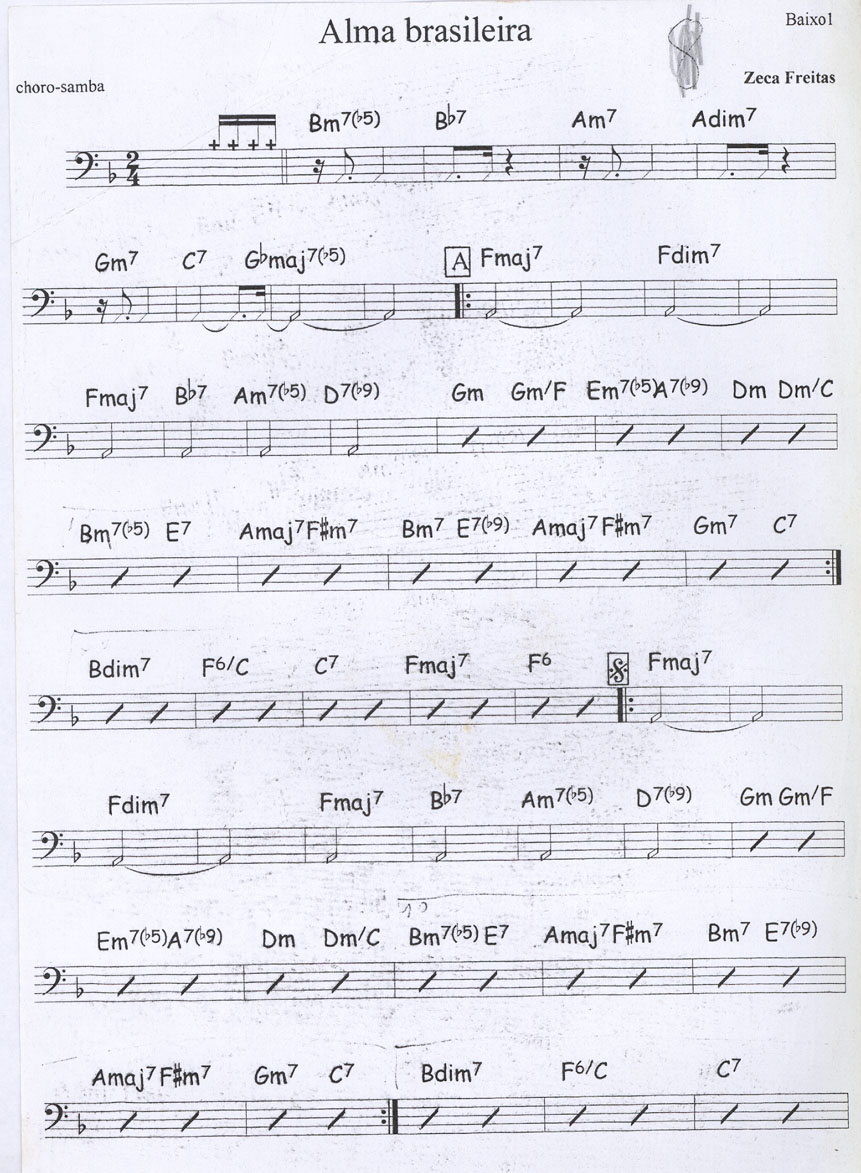 Alma brasileira
Baixo1
choro-samba
8
Zeca Freitas
2/4
Bm7(♭5) B♭7 Am7 Adim7
Gm7 C7 G♭maj7(♭5) A Fmaj7 Fdim7
Fmaj7 B♭7 Am7(♭5) D7(♭9) Gm Gm/F Em7(♭5) A7(♭9) Dm Dm/C
Bm7(♭5) E7 Amaj7 F♯m7 Bm7 E7(♭9) Amaj7 F♯m7 Gm7 C7
Bdim7 F6/C C7 Fmaj7 F6 Fmaj7
Fdim7 Fmaj7 B♭7 Am7(♭5) D7(♭9) Gm Gm/F
Em7(♭5) A7(♭9) Dm Dm/C Bm7(♭5) E7 Amaj7 F♯m7 Bm7 E7(♭9)
Amaj7 F♯m7 Gm7 C7 Bdim7 F6/C C7